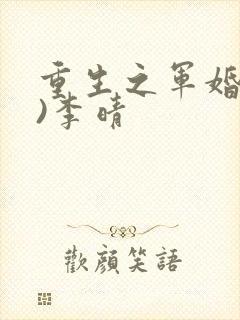 重生之军婚
)李晴
歡顔笑語